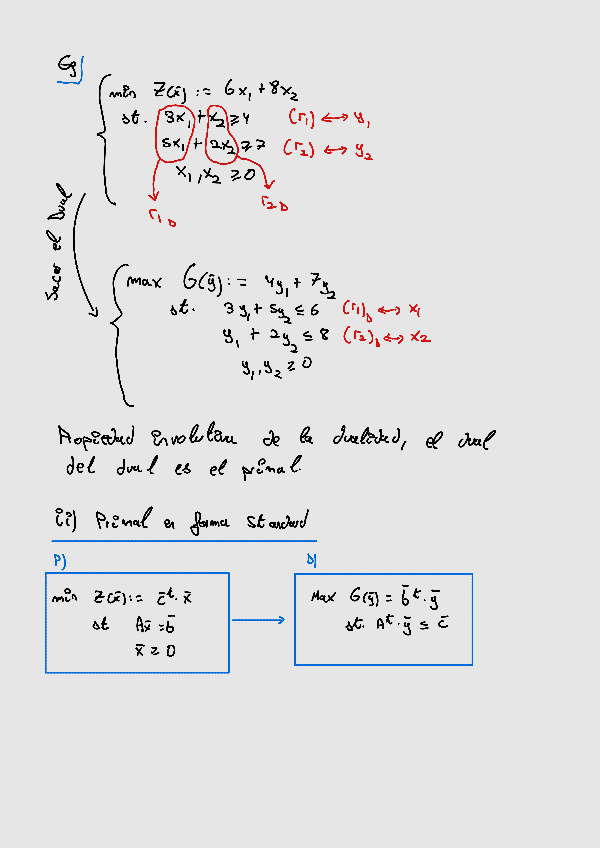 Eg
min Z(x̄) := 6x₁ + 8x₂
st. 3x₁ + x₂ ≥ 4 (r₁) ↔ y₁
5x₁ + 2x₂ ≥ 7 (r₂) ↔ y₂
x₁, x₂ ≥ 0
r₁D r₂D
Sacar el Dual
max G(ȳ) := 4y₁ + 7y₂
st. 3y₁ + 5y₂ ≤ 6 (r₁)D ↔ x₁
y₁ + 2y₂ ≤ 8 (r₂)D ↔ x₂
y₁, y₂ ≥ 0
Propiedad involutiva de la dualidad, el dual
del dual es el primal.
ii) Primal en forma standard
P) D)
min Z(x̄) := c̄ᵗ · x̄
st Ax̄ = b̄
x̄ ≥ 0
Max G(ȳ) = b̄ᵗ · ȳ
st. Aᵗ · ȳ ≤ c̄